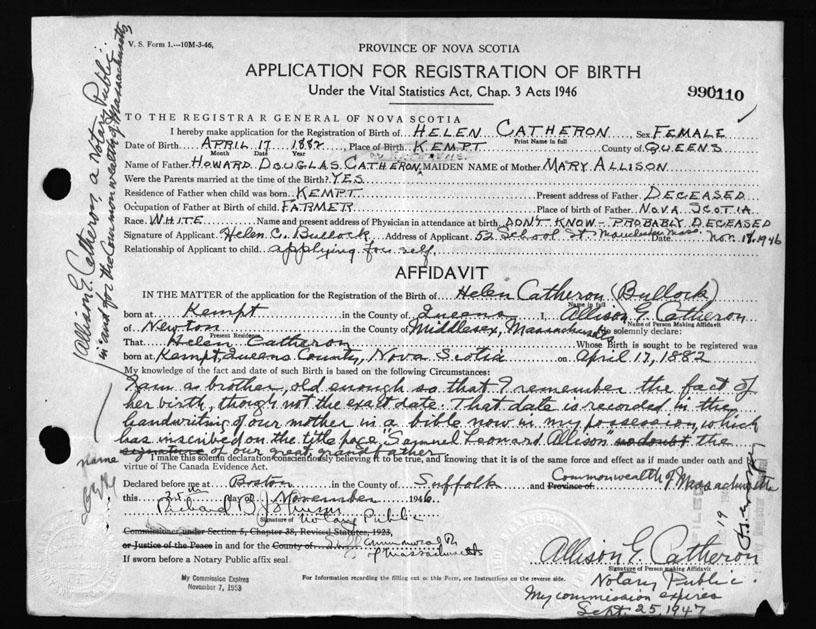 V. S. Form 1.—10M-3-46.
PROVINCE OF NOVA SCOTIA
APPLICATION FOR REGISTRATION OF BIRTH
Under the Vital Statistics Act, Chap. 3 Acts 1946
990110
TO THE REGISTRAR GENERAL OF NOVA SCOTIA
I hereby make application for the Registration of Birth of HELEN CATHERON Sex FEMALE
Print Name in full
Date of Birth APRIL 17 1882 Place of Birth KEMPT County of QUEENS
Month Date Year
Name of Father HOWARD DOUGLAS CATHERON, MAIDEN NAME of Mother MARY ALLISON
Were the Parents married at time of the Birth? YES
Residence of Father when child was born KEMPT Present address of Father DECEASED
Occupation of Father at Birth of child FARMER Place of birth of Father NOVA SCOTIA
Race WHITE Name and present address of Physician in attendance at birth DON'T KNOW - PROBABLY DECEASED
Signature of Applicant Helen C. Bullock Address of Applicant 52 School St. Manchester Mass. Date Nov. 18, 1946
Relationship of Applicant to child applying for self.
AFFIDAVIT
IN THE MATTER of the application for the Registration of the Birth of Helen Catheron (Bullock)
Name in full
born at Kempt in the County of Queens I, Allison G. Catheron
Name of Person Making Affidavit
of Newton in the County of Middlesex, Massachusetts do solemnly declare:
Present Residence
That Helen Catheron Whose Birth is sought to be registered was
born at Kempt, Queens County, Nova Scotia on April 17, 1882
My knowledge of the fact and date of such Birth is based on the following Circumstances:
I am a brother, old enough so that I remember the fact of
her birth, though not the exact date. That date is recorded in the
handwriting of our mother in a bible now in my possession, which
has inscribed on the title page, Samuel Leonard Allison no doubt the
signature of our great grandfather
I make this solemn declaration conscientiously believing it to be true, and knowing that it is of the same force and effect as if made under oath and by
virtue of The Canada Evidence Act.
Declared before me at Boston in the County of Suffolk and Province of Commonwealth of Massachusetts
this 25th day of November 1946.
Richard B. Johnson
Signature of Notary Public
Commissioner under Section 5, Chapter 38, Revised Statutes, 1923,
or Justice of the Peace in and for the County of Commonwealth
of Massachusetts
If sworn before a Notary Public affix seal
Allison G. Catheron
Signature of Person making Affidavit
Notary Public.
My commission expires
Sept. 25, 1947
My Commission Expires
November 7, 1953
For Information regarding the filling out of this Form, see Instructions on the reverse side.
Allison G. Catheron, a Notary Public
in and for the Commonwealth of Massachusetts
name